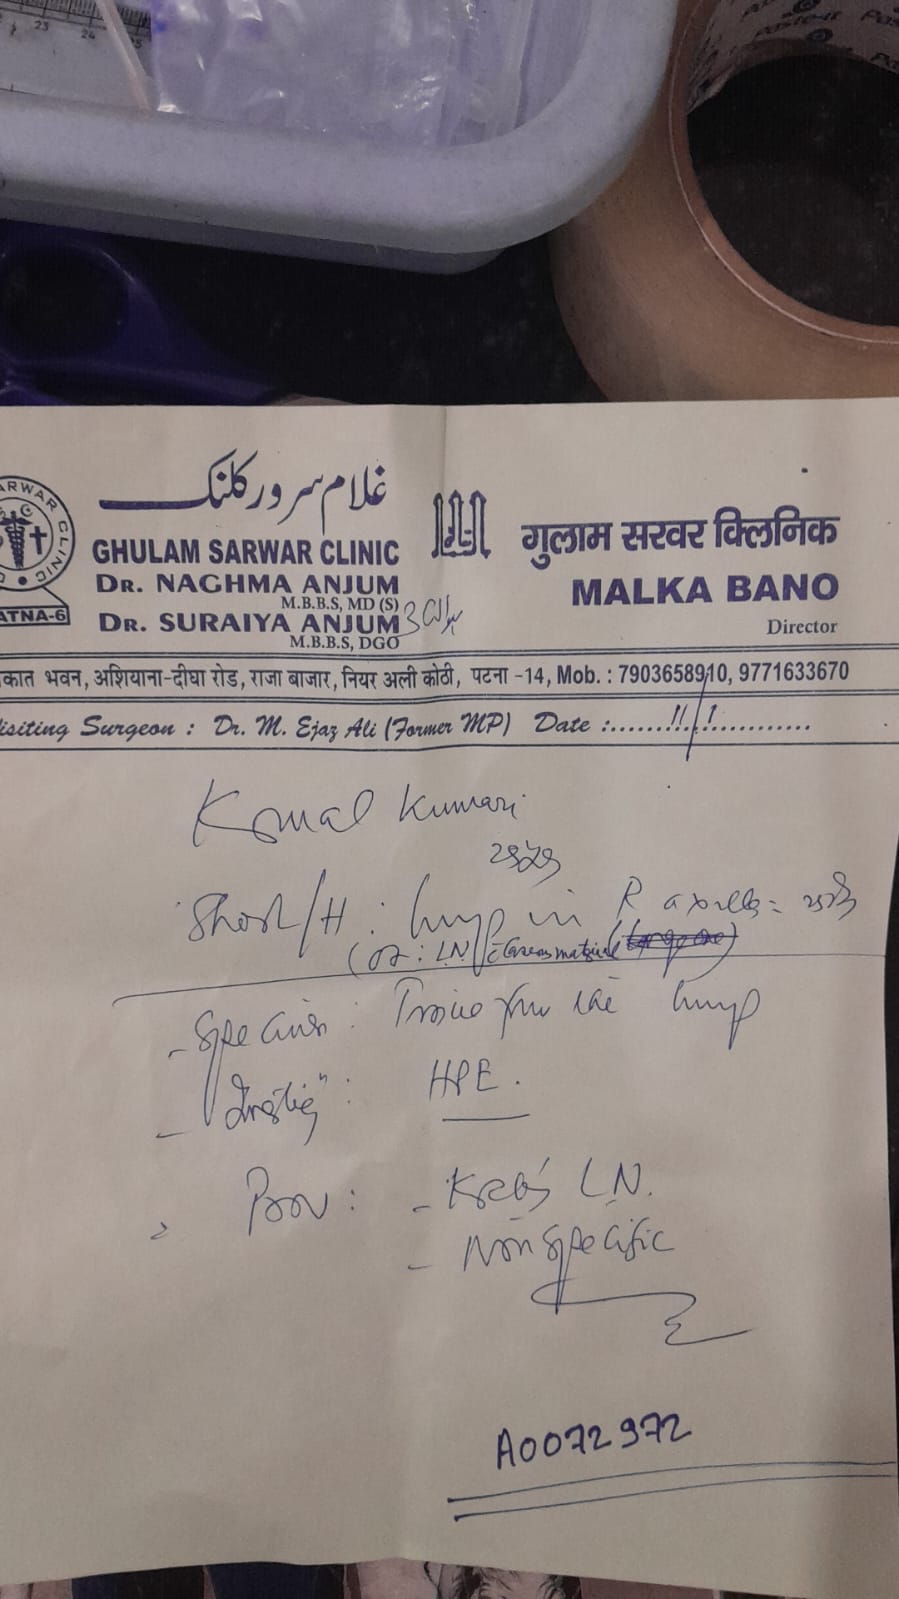 غلام سرور کلنک
गुलाम सरवर क्लिनिक
GHULAM SARWAR CLINIC
DR. NAGHMA ANJUM
M.B.B.S, MD (S)
DR. SURAIYA ANJUM
M.B.B.S, DGO
MALKA BANO
Director
ARWAR CLINIC
ATNA-6
कात भवन, अशियाना-दीघा रोड, राजा बाजार, नियर अली कोठी, पटना -14, Mob. : 7903658910, 9771633670
isiting Surgeon : Dr. M. Ejaz Ali (Former MP) Date :......11/1............
Komal Kumari
Short/H : lump in R axilla
LN
- Specimen : Tissue from the lump
HPE.
- Koch's LN.
- Non specific
A0072972